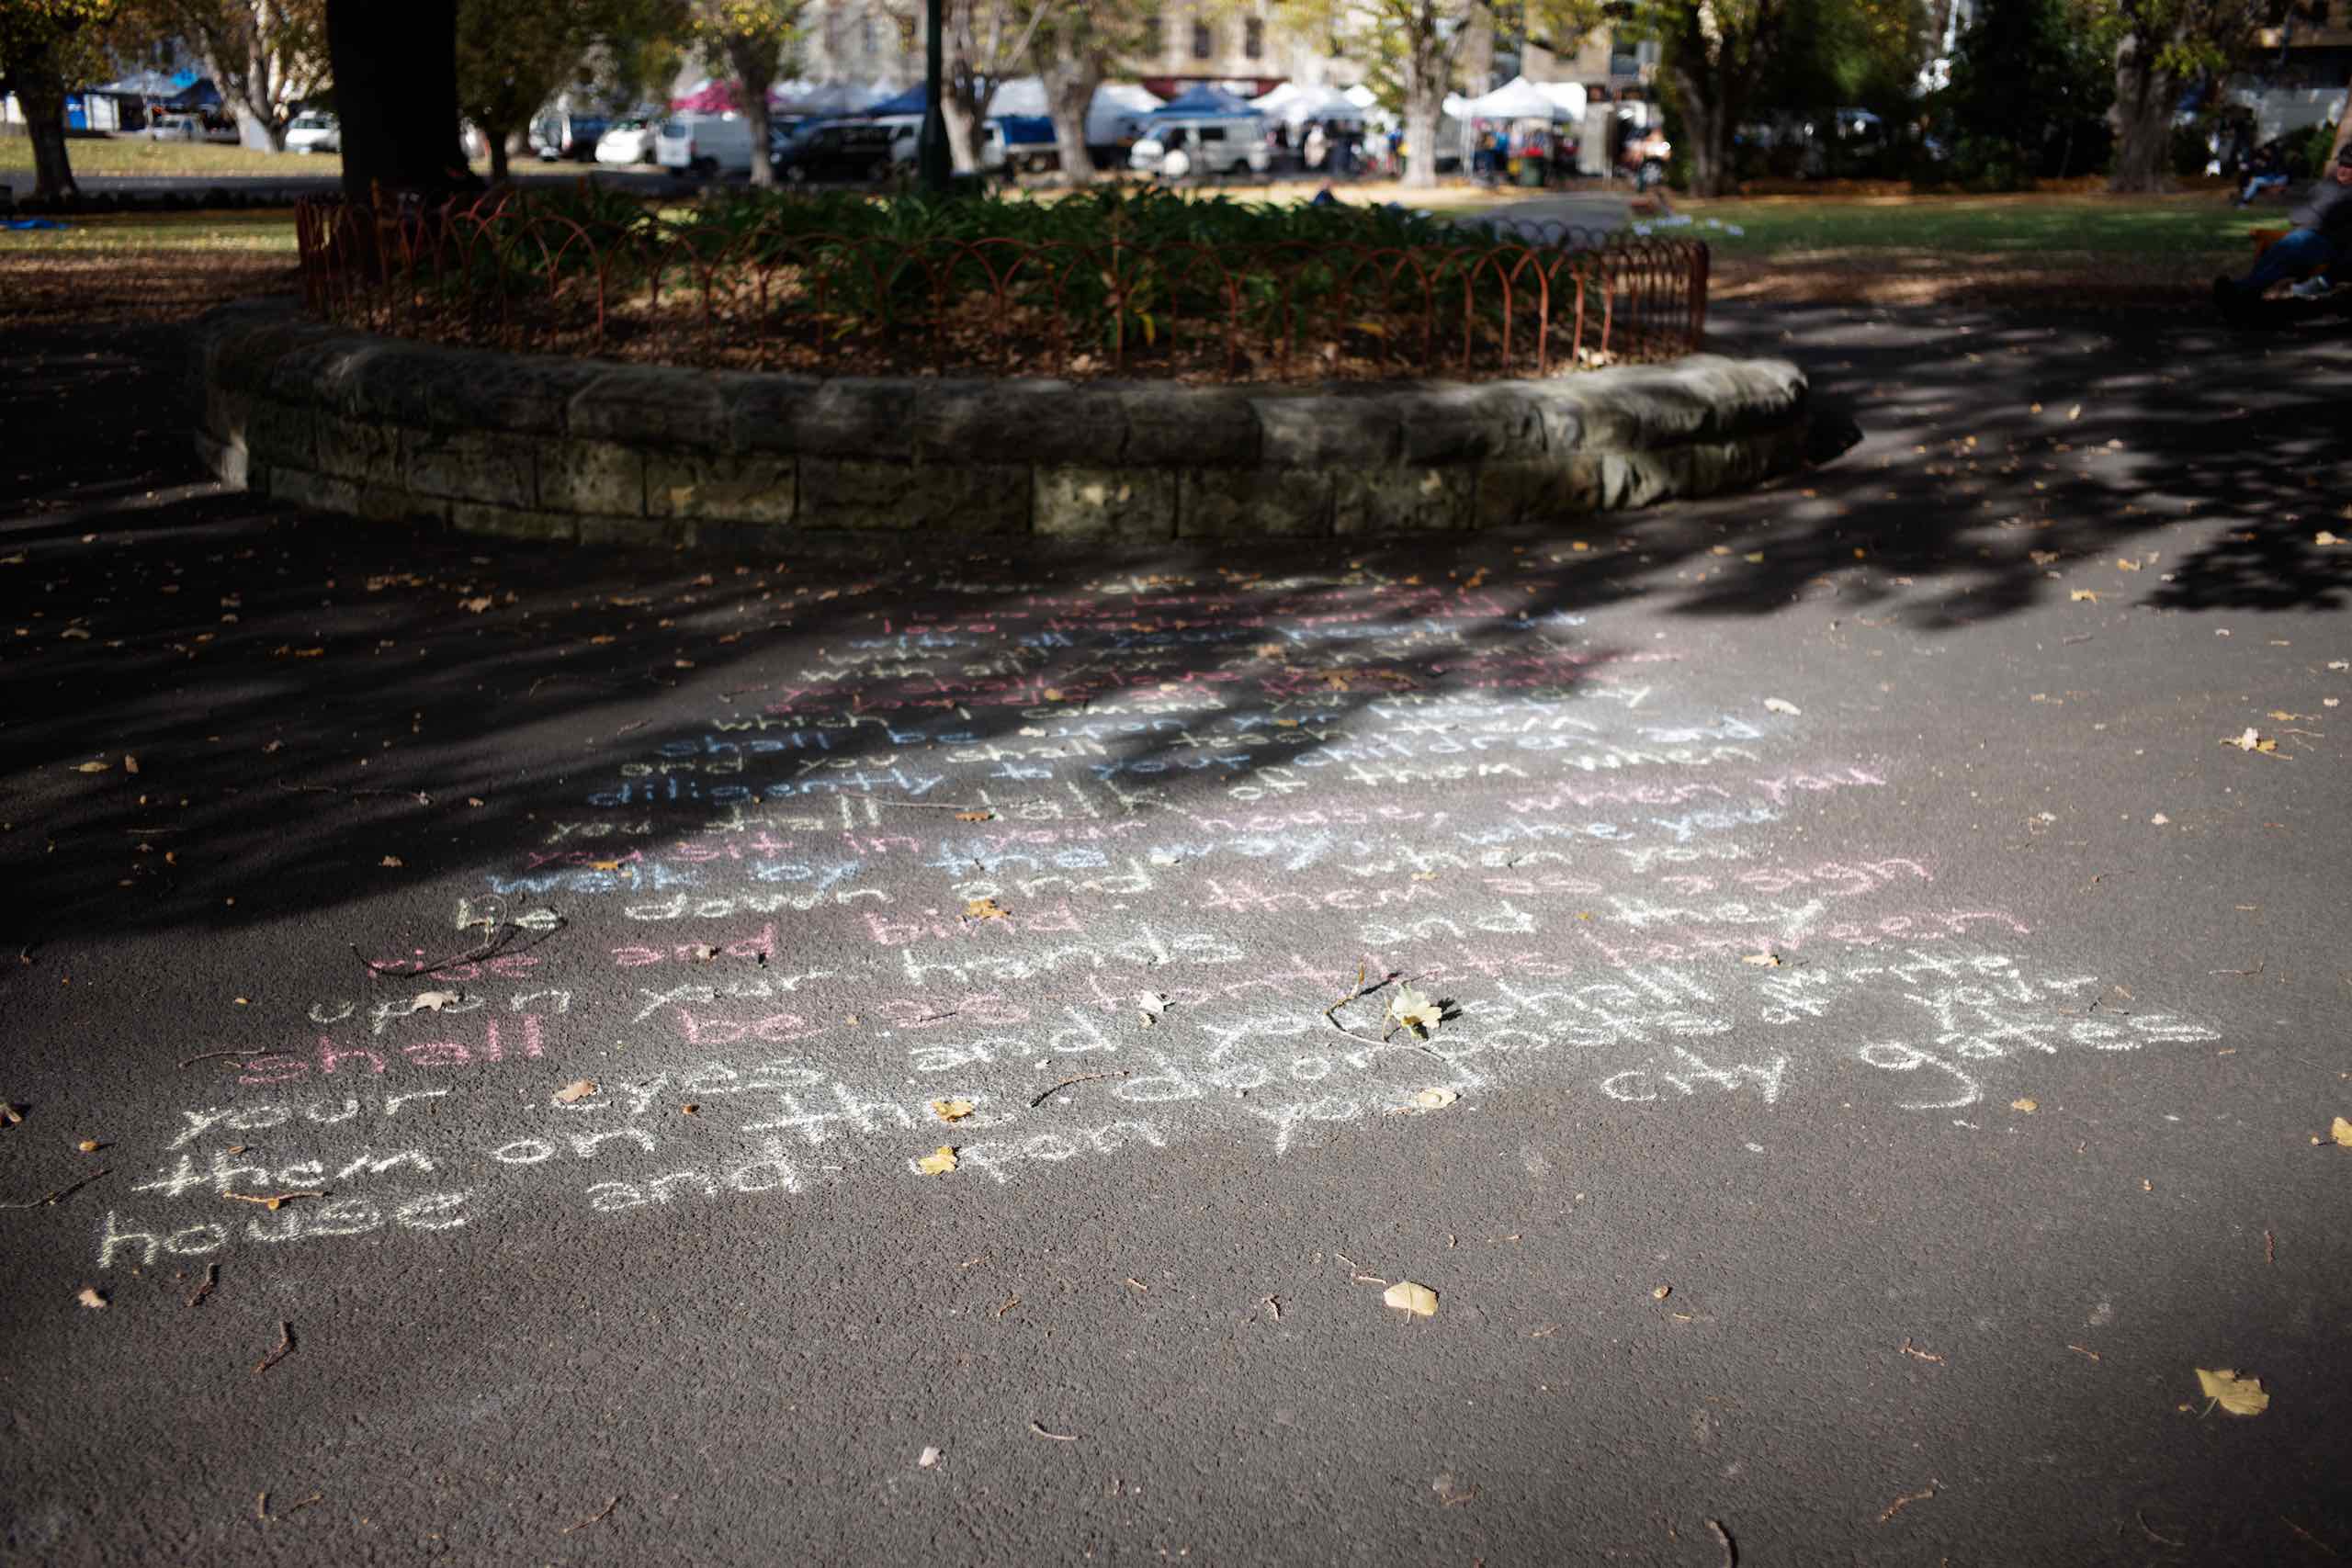 love
with all your heart
with all your
you shall love
which I command you this day
shall be upon your heart
and you shall teach them
diligently to your children and
you shall talk of them when
you sit in your house, when you
walk by the way, whe you
lie down and when you
rise and bind them as a sign
upon your hands and they
shall be as frontlets between
your eyes and you shall write
them on the door posts of your
house and upon your city gates